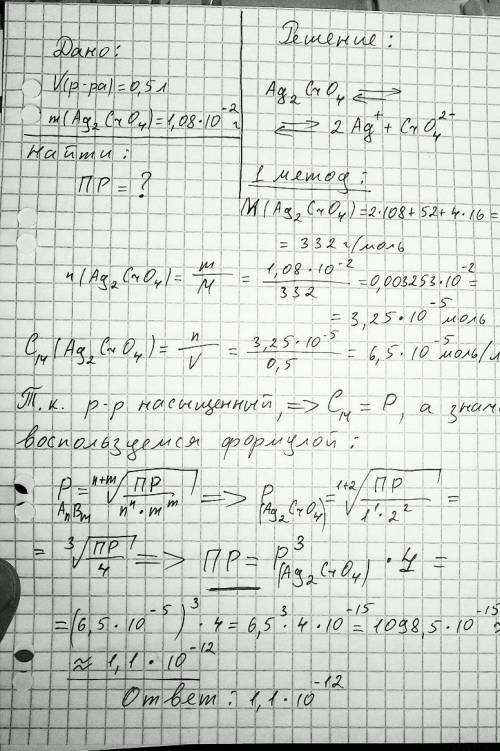 Дано:
V(р-ра)=0,5л
m(Ag₂CrO₄)=1,08·10⁻² г
Найти:
ПР = ?
Решение:
Ag₂CrO₄ ⇄
⇄ 2Ag⁺ + CrO₄²⁻
1 метод:
M(Ag₂CrO₄)=2·108+52+4·16=
= 332 г/моль
n(Ag₂CrO₄)= m/M = 1,08·10⁻²/332 =0,003253·10⁻²=
= 3,25·10⁻⁵ моль
Cм(Ag₂CrO₄)= n/V = 3,25·10⁻⁵/0,5 = 6,5·10⁻⁵ моль/л
Т.к. р-р насыщенный, => Cм = P, а знач
воспользуемся формулой:
P AnBm = ⁿ⁺ᵐ√(ПР/nⁿ·mᵐ) => P(Ag₂CrO₄) = ¹⁺²√(ПР/1¹·2²) =
= ³√(ПР/4) => ПР = P³(Ag₂CrO₄) · 4 =
=(6,5·10⁻⁵)³·4 = 6,5³·4·10⁻¹⁵=1098,5·10⁻¹⁵≈
≈ 1,1·10⁻¹²
Ответ: 1,1·10⁻¹²